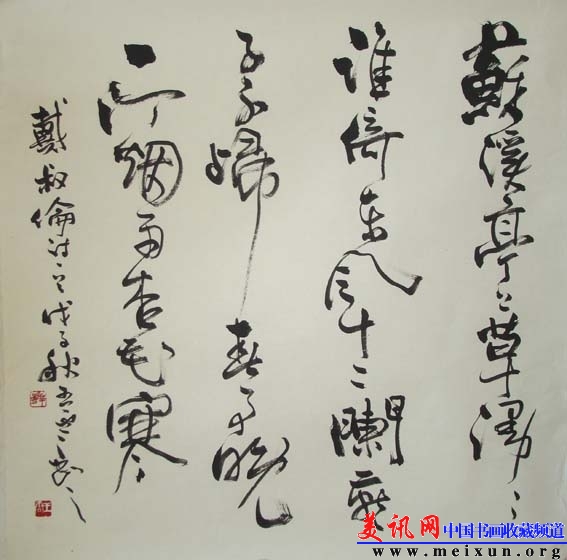 蘇溪亭上草漫々
誰倚東風十二闌燕
子不歸春事晚
一汀烟雨杏花寒
戴叔倫詩 戊子秋
美讯网 中国书画收藏频道
www.meixun.org